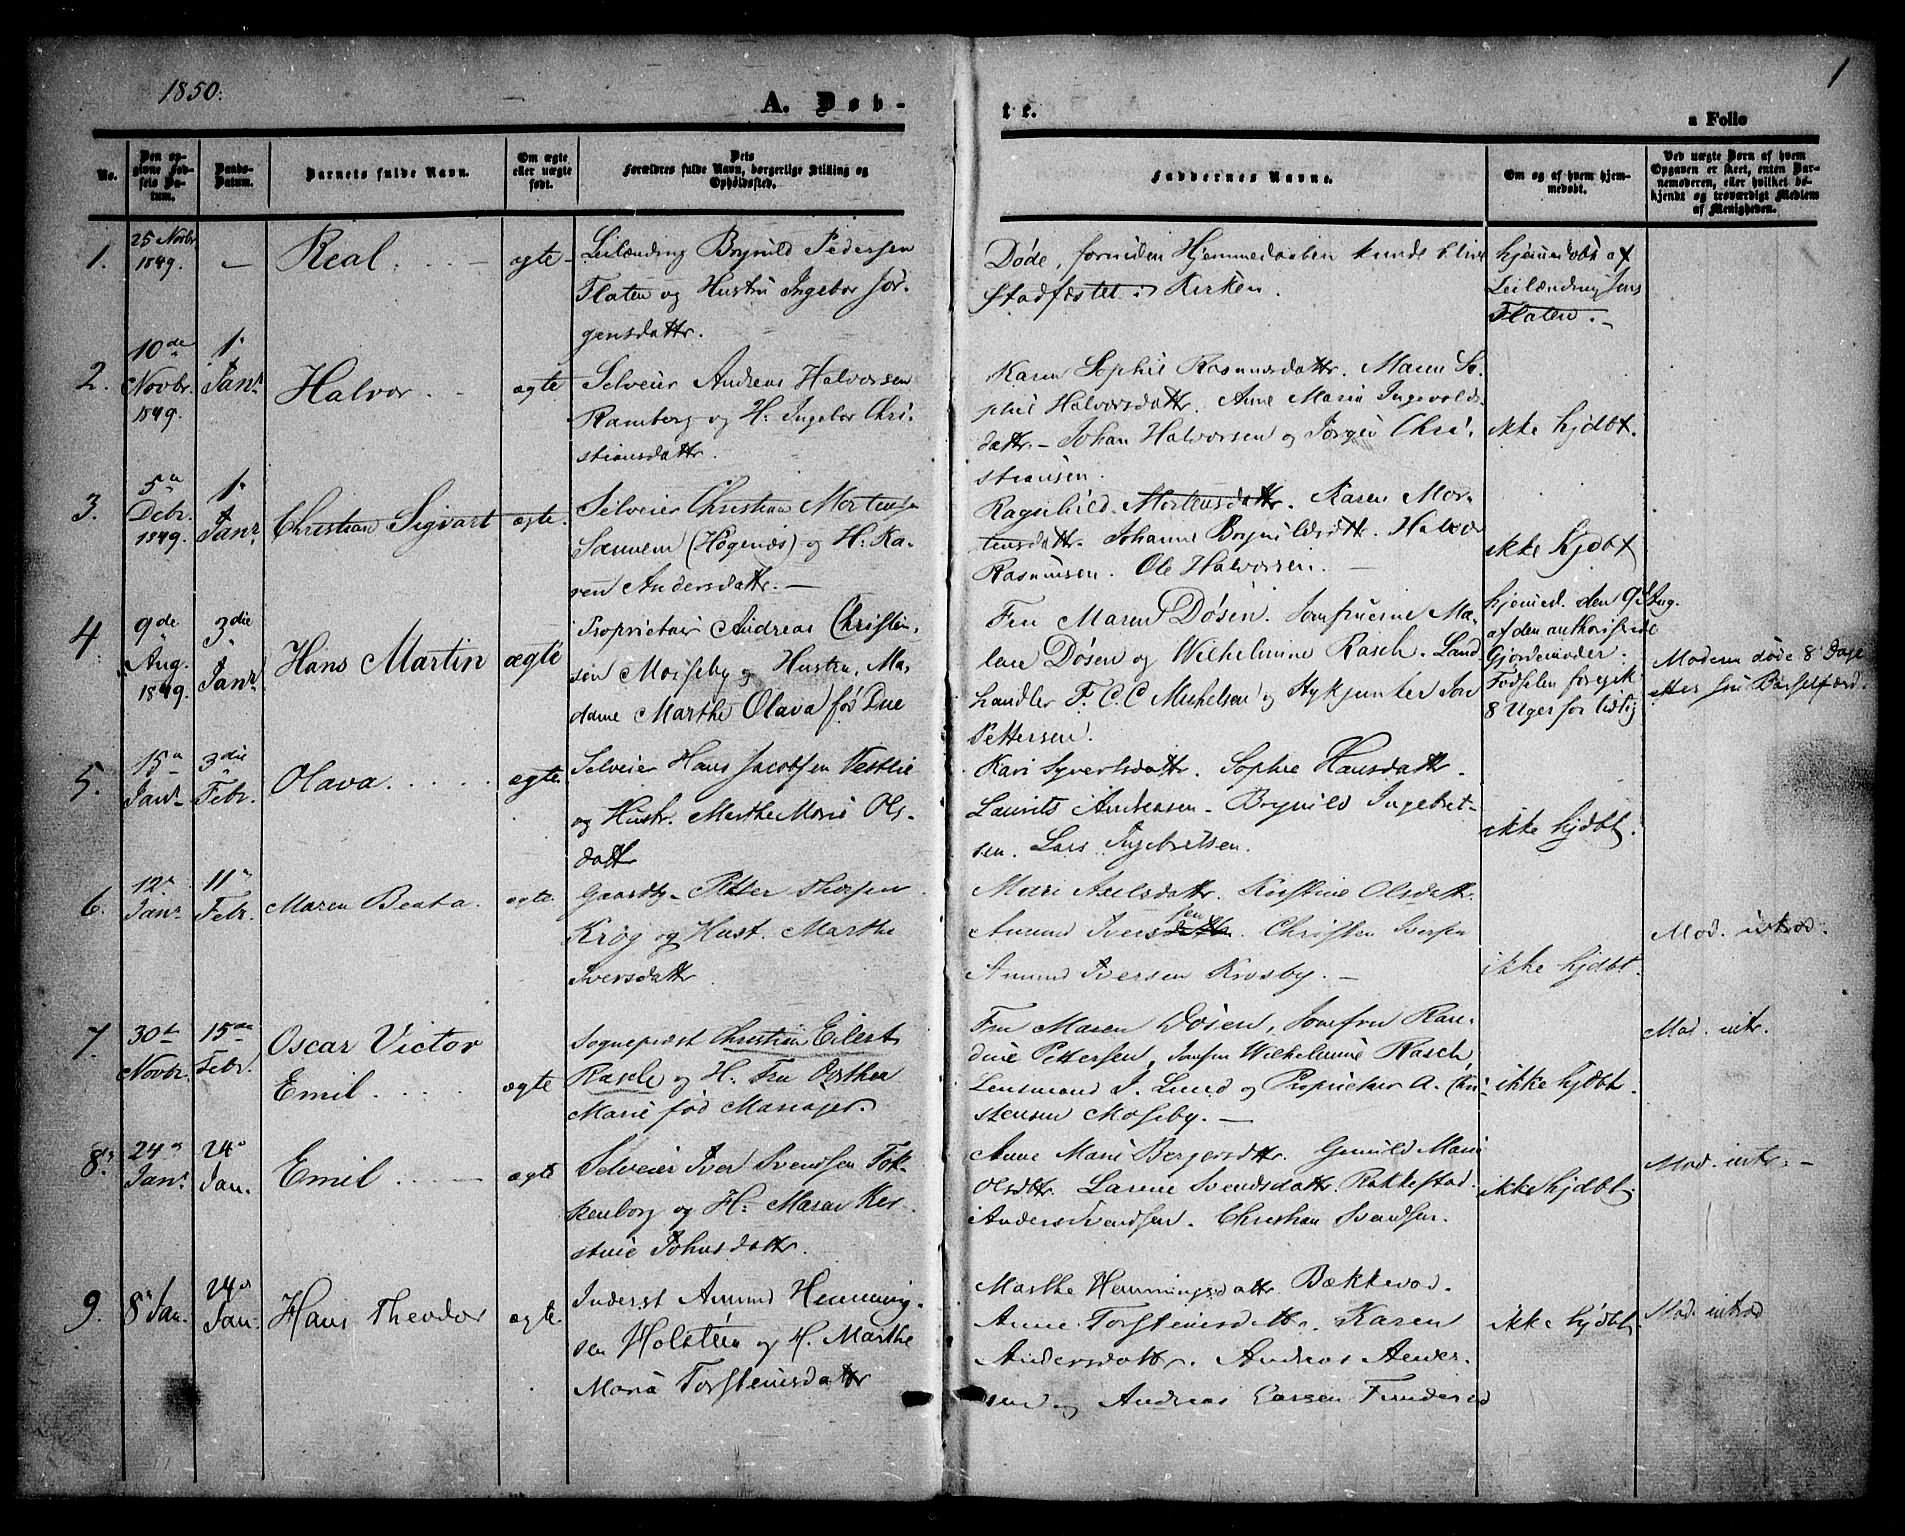 1850.
1
A. Døb-
te.
a Folio
No.
Den opgivne Fødsels Datum.
Daabs-Datum.
Barnets fulde Navn.
Om ægte eller uægte født.
Dets Forældres fulde Navn, borgerlige Stilling og Opholdssted.
Faddernes Navne.
Om og af hvem hjemmedøbt.
Ved uægte Børn af hvem Opgaven er skeet, enten Barnemoderen, eller hvilket bekjendt og troværdigt Medlem af Menigheden.
1.
25 Novbr
1849.
Real.
ægte
Leilænding Brynild Pedersen
Flaten og Hustru Ingebor Jør-
gensdattr.
Døde, forinden Hjemmedaaben kunde blive
stadfæstet i Kirken.
hjemmedøbt af
Leilænding Jens
Flaten.
2.
10de
Novbr.
1849.
1.
Janr
Halvor.
ægte
Selveier Andreas Halvorsen
Ramberg og H. Ingebor Chri-
stiansdattr.
Karen Sophie Rasmusdattr. Maren So-
phie Halvorsdattr. Anne Maria Ingevolds-
dattr. Johan Halvorsen og Jørgen Chri-
stiansen.
ikke hjdbt.
3.
5
Debr.
1849.
1.
Janr.
Christian Sigvart
ægte.
Selveier Christian Mortensen
Sannem (Høgenæs) og H. Ka-
ren Andersdattr.
Ragnhild Mortensdattr. Karen Mor-
tensdattr. Johanne Brynildsdttr. Halvor
Rasmusen. Ole Halvorsen.
ikke hjdbt
4
9de
Aug.
1849.
3die
Janr
Hans Martin
ægte
Proprietair Andreas Christen-
sen Mosseby og Hustru, Ma-
dame Marthe Olava fød Due
Fru Maren Døsen. Jomfruerne Ma-
lene Døsen og Wilhelmine Rasch. Land
handler F. C. C. Michelsen og Stykjunker Jon
Pettersen.
hjemmed. den 9d Aug.
af den authoriserede
Gjordemoder.
Fødselen foregik
8 Uger for tidlig
Moderen døde 8 Dage
efter sin Barselfærd.
5.
15
Janr
3die
Febr.
Olava.
ægte.
Selveier Hans Jacobsen Vestlie
og Hustr. Marthe Marie Ols-
dattr
Kari Syversdattr. Sophie Hansdattr.
Laurits Andersen. Brynild Ingebret-
sen. Lars Ingebretsen.
ikke hjdbt.
6.
12
Janr
11
Febr.
Maren Beata.
ægte.
Gaardbr. Petter Thorsen
Krog og Hust. Marthe
Iversdattr
Mari Axelsdattr. Kirstine Olsdattr.
Amund Iversdattr sen. Christen Iversen
Amund Iversen Krosby.
ikke hjdbt.
Mod. introd.
7.
30te
Novbr.
15de
Febr.
Oscar Victor
Emil.
ægte
Sognepræst Christian Eilert
Rasch og H. Fru Dorthea
Marie fød Mariager.
Fru Maren Døsen, Jomfru Ran-
dine Pettersen, Jomfru Wilhelmine Rasch
Lensmand J. Lund og Proprietair A. Chri-
stensen Mosseby.
ikke hjdbt
Mod. intr.
8.
24
Janr.
24
Jan.
Emil.
ægte
Selveier Iver Svendsen Fok-
kenborg og H: Maren Kir-
stine Johnsdattr.
Anne Marie Bergersdttr. Gunild Marie
Olsdttr. Larine Svendsdattr. Rakkestad.
Anders Svendsen. Christian Svendsen.
ikke hjdbt.
Mod. intr.
9.
8 Jan.
24
Jan.
Hans Theodor
ægte.
Inderst Amund Henning-
sen Holsteen og H. Marthe
Maria Torsteinsdattr
Marthe Henningsdattr. Bækkevad
Anne Torsteinsdattr. Karen
Andersdattr. Andreas Ander-
sen og Andreas Larsen Funderud
ikke hjdbt.
Mod. introd